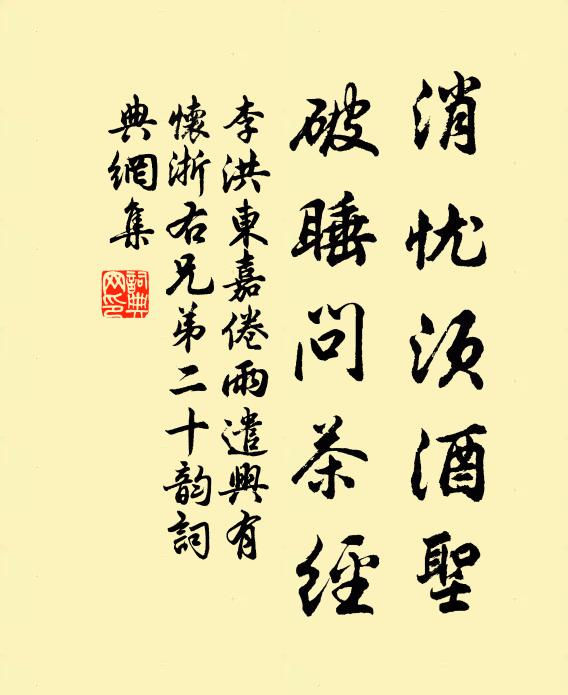 消忧须酒聖
破睡問茶經
李洪東嘉倦雨遣興有
懷浙右兄弟二十韵詞
典網集
詞典網印